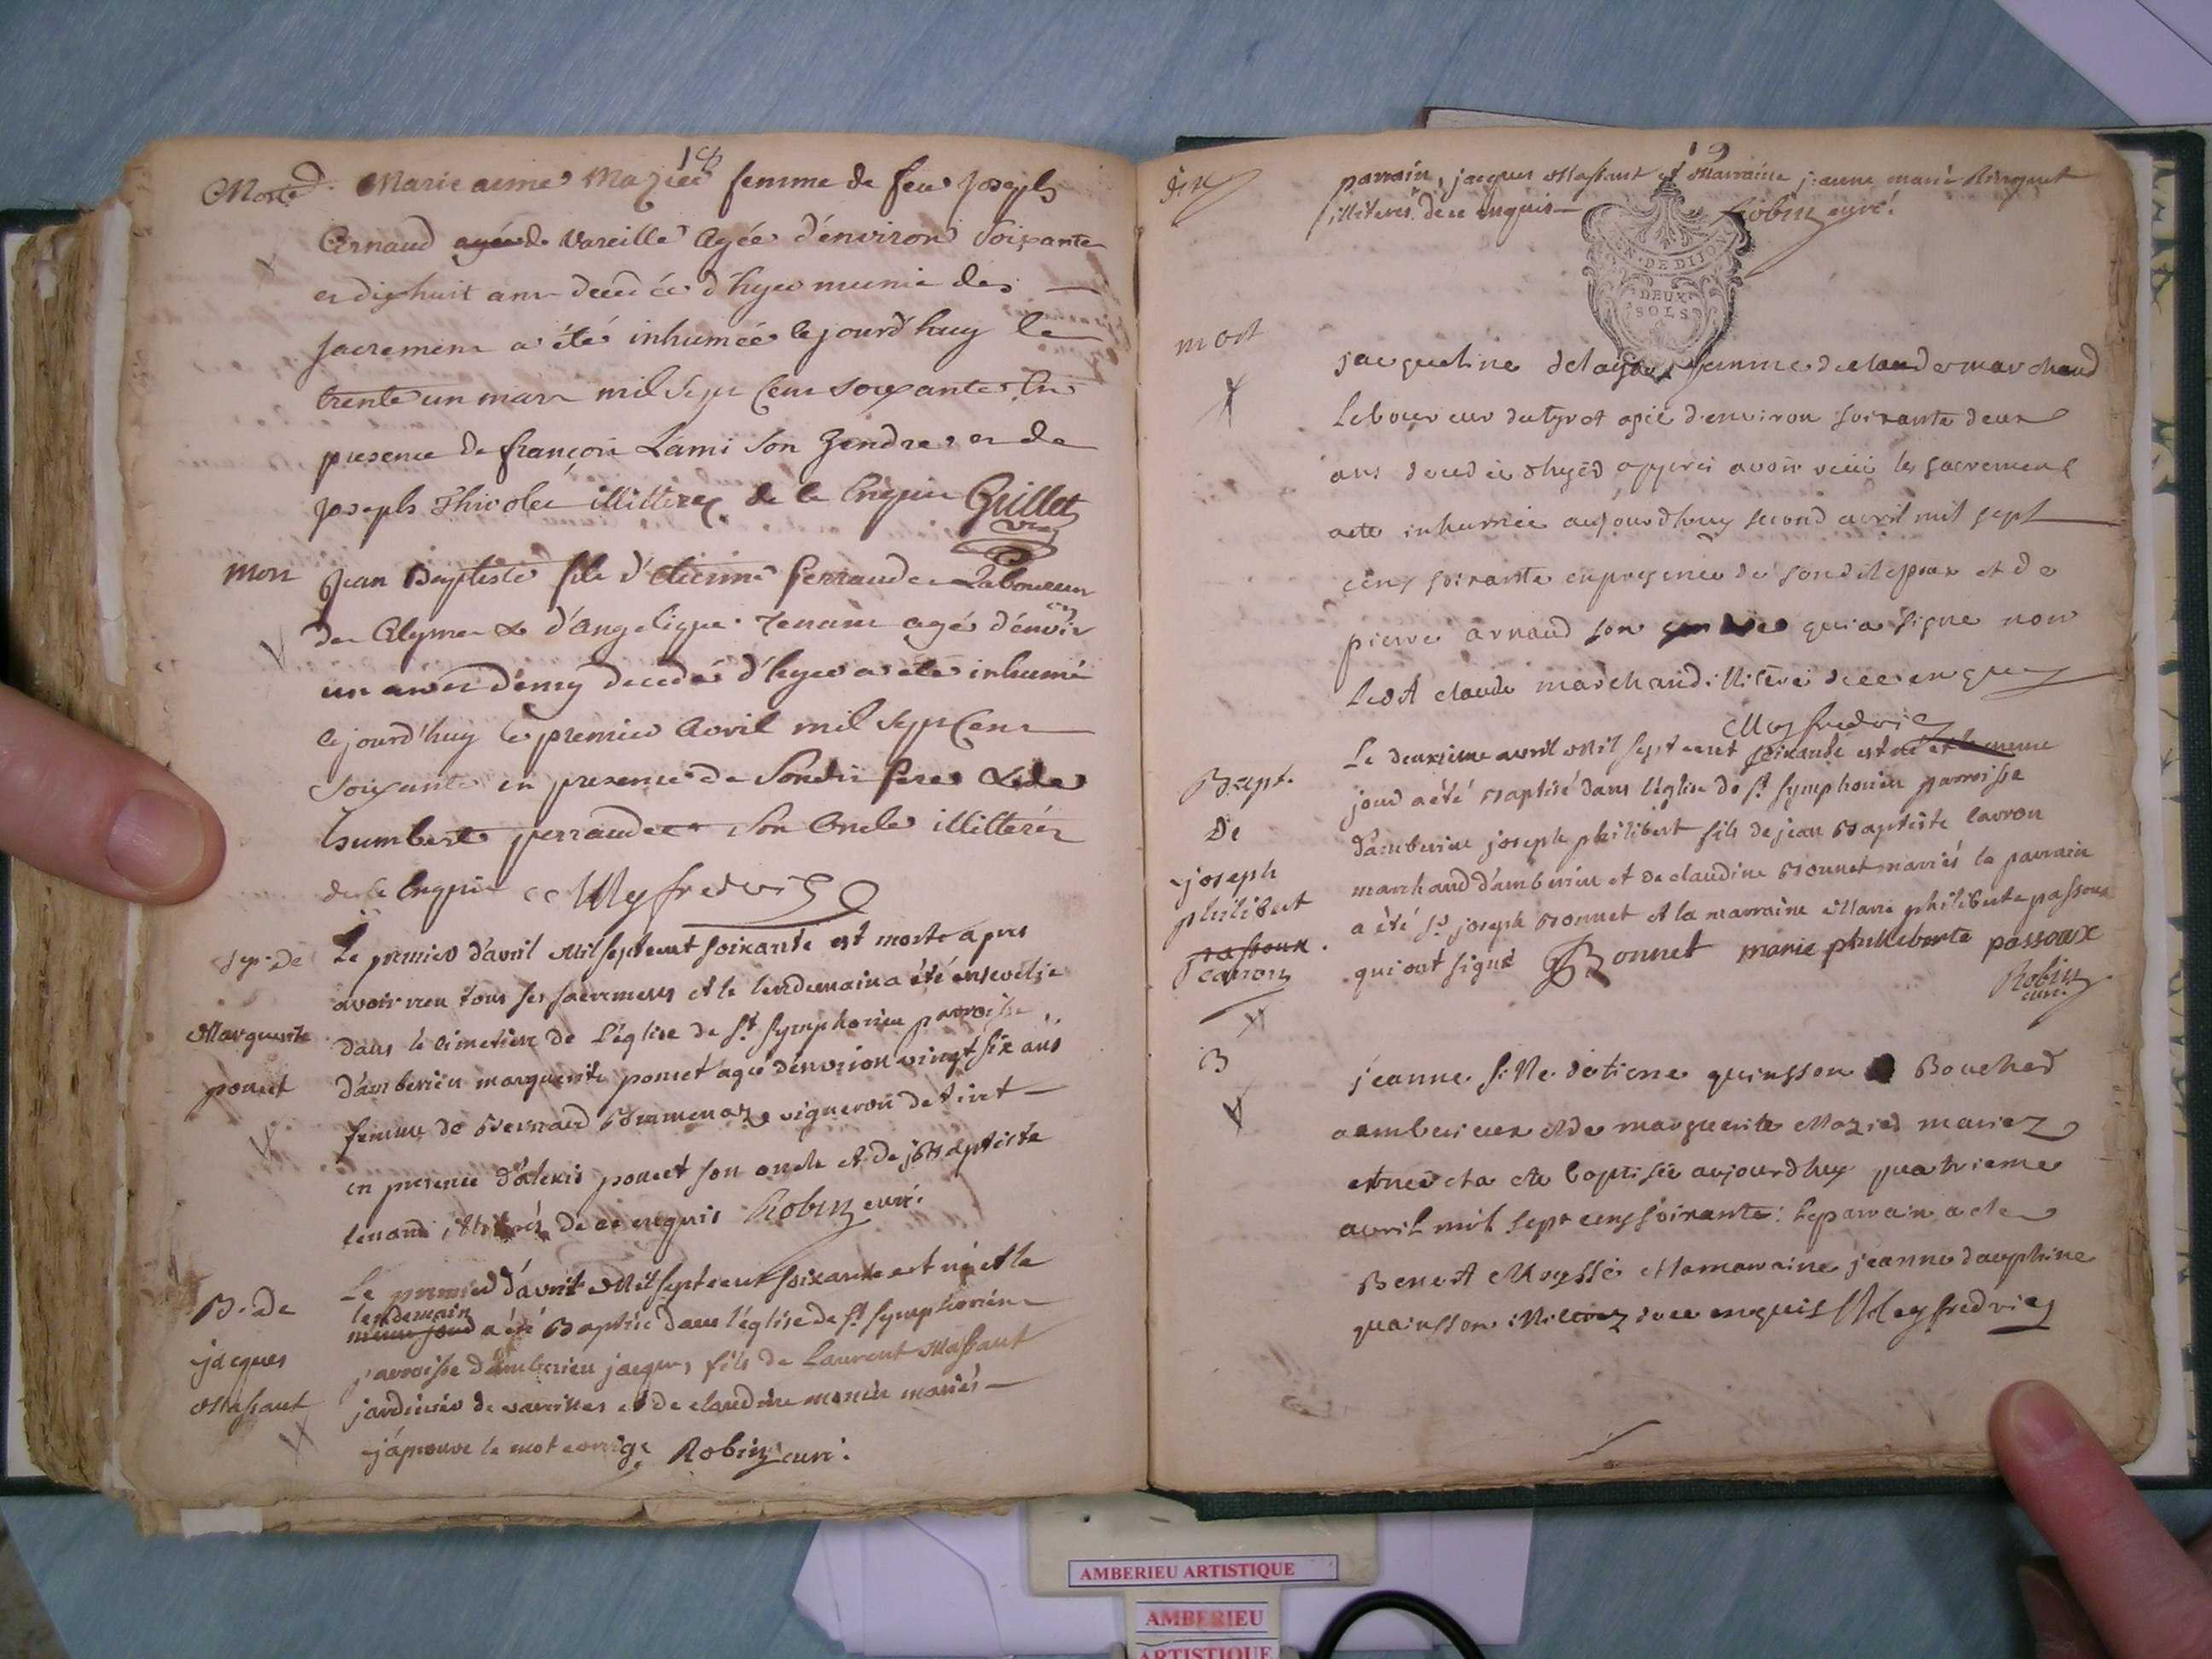 18
Morte
Marie aimé Mazier femme de feu Joseph
Arnaud agée de Vareille Agée d'environ Soixante
et dix huit ans decedée d'hyer munie des
sacremens a été inhumée ce jourd'huy le
trente un mars mil Sept Cens soixante En
presence de françois Lami Son Gendre, et de
Joseph illitterez de ce Enquis Grillet
vic.
mort
Jean Baptiste fils d'Etienne ferraudet Laboureur
des Alymes & d'Angelique Tenant agé d'envir
un an et demy decedé d'hyer a été inhumé
ce jourd'huy le premier Avril mil Sept Cens
Soixante en presence de Sondit pere & de
humbert perraudet Son Oncle illitterés
de ce Enquis Meyfredvic
sep. de
Marguerite
poncet
Le premier d'avril Mil sept cent soixante est morte apres
avoir reçu tous ses sacremens et le lendemain a été ensevelie
dans le cimetiere de l'église de st symphorien parroisse
d'amberieu marguerite poncet agée d'environ vingt six ans
femme de Bernard Bommenaz vigneron de tiret
en presence d'alexis poncet son oncle et de j. Baptiste
tenand illitérés de ce enquis Robin curé.
B. de
jacques
Massaut
Le premier d'avril Mil sept cent soixante est né et le
lendemain
meme jour a été Baptisé dans l'église de st symphorien
parroisse d'amberieu jacques fils de Laurent Massaut
jardinier de vareilles et de claudine monin mariés
j'aprouve le mot corrigé Robin curé.
19
parrain, jacques Massaut et Marraine jeanne marie
illiterés de ce enquis Robin curé.
GEN. DE DIJON
DEUX
SOLS
mort
jacqueline femme de claude marchand
Laboureur du tyret agée d'environ soixante deux
ans decedée d'hyer apprés avoir reçu les sacremens
a été inhumée aujourd'huy second avril mil sept
cens soixante en presence de son dit epoux et de
pierre arnaud son gendre qui a signe non
ledit claude marchand illitéré de ce enquis
Meyfredvic
Bapt.
De
joseph
philibert
passoux
carron
Le deuxieme avril Mil sept cent soixante est né et le meme
jour a été Baptisé dans l'église de st symphorien parroisse
d'amberieu joseph philibert fils de jean Baptiste carron
marchand d'amberieu et de claudine Bonnet mariés le parrain
a été sr joseph Bonnet et la marraine Marie philiberte passoux
qui ont signé Bonnet marie philleberte passoux
Robin
curé.
B
jeanne fille d'etiene quinsson Boucher
a amberieux et de marguerite Mazier mariez
est née et a ete baptisée aujourdhuy quatrieme
avril mil sept cens soixante: le parrain a ete
Benoit et la marraine jeanne dauphine
quinsson illiterez de ce enquis Meyfredvic
AMBERIEU ARTISTIQUE
AMBERIEU
ARTISTIQUE